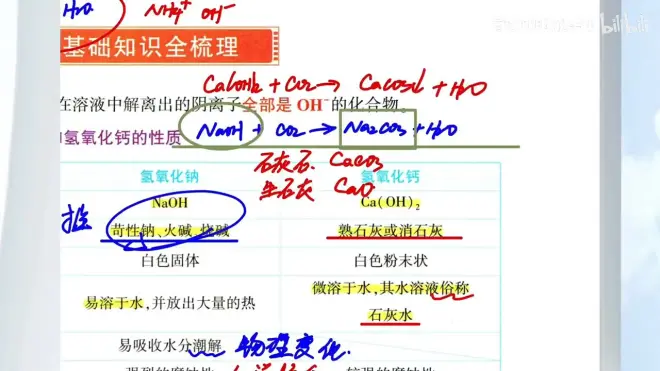 H2O NH4+ OH-
bilibili
基础知识全梳理
Ca(OH)2 + CO2 → CaCO3↓ + H2O
在溶液中解离出的阴离子全部是 OH⁻的化合物。
氢氧化钙的性质 NaOH + CO2 → Na2CO3 + H2O
石灰石 CaCO3
氢氧化钠 氢氧化钙
生石灰 CaO
NaOH Ca(OH)₂
苛性钠、火碱、烧碱 熟石灰或消石灰
白色固体 白色粉末状
易溶于水,并放出大量的热 微溶于水,其水溶液俗称
石灰水
易吸收水分潮解 物理变化.